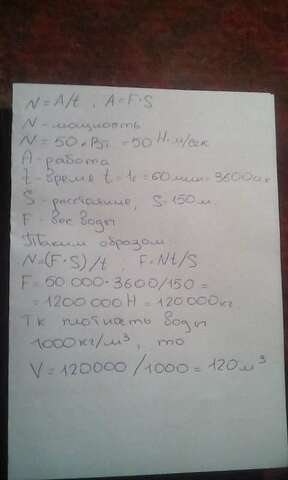 N = A/t , A = F·S
N - мощность
N = 50 кВт = 50 Н·м/сек
A - работа
t - время t = 1ч = 60 мин = 3600 сек
S - расстояние, S = 150 м.
F - вес воды
Таким образом
N = (F·S)/t , F = Nt/S
F = 50 000 · 3600/150 =
= 1200 000 Н = 120 000 кг
Тк плотность воды
1000 кг/м³, то
V = 120000/1000 = 120 м³